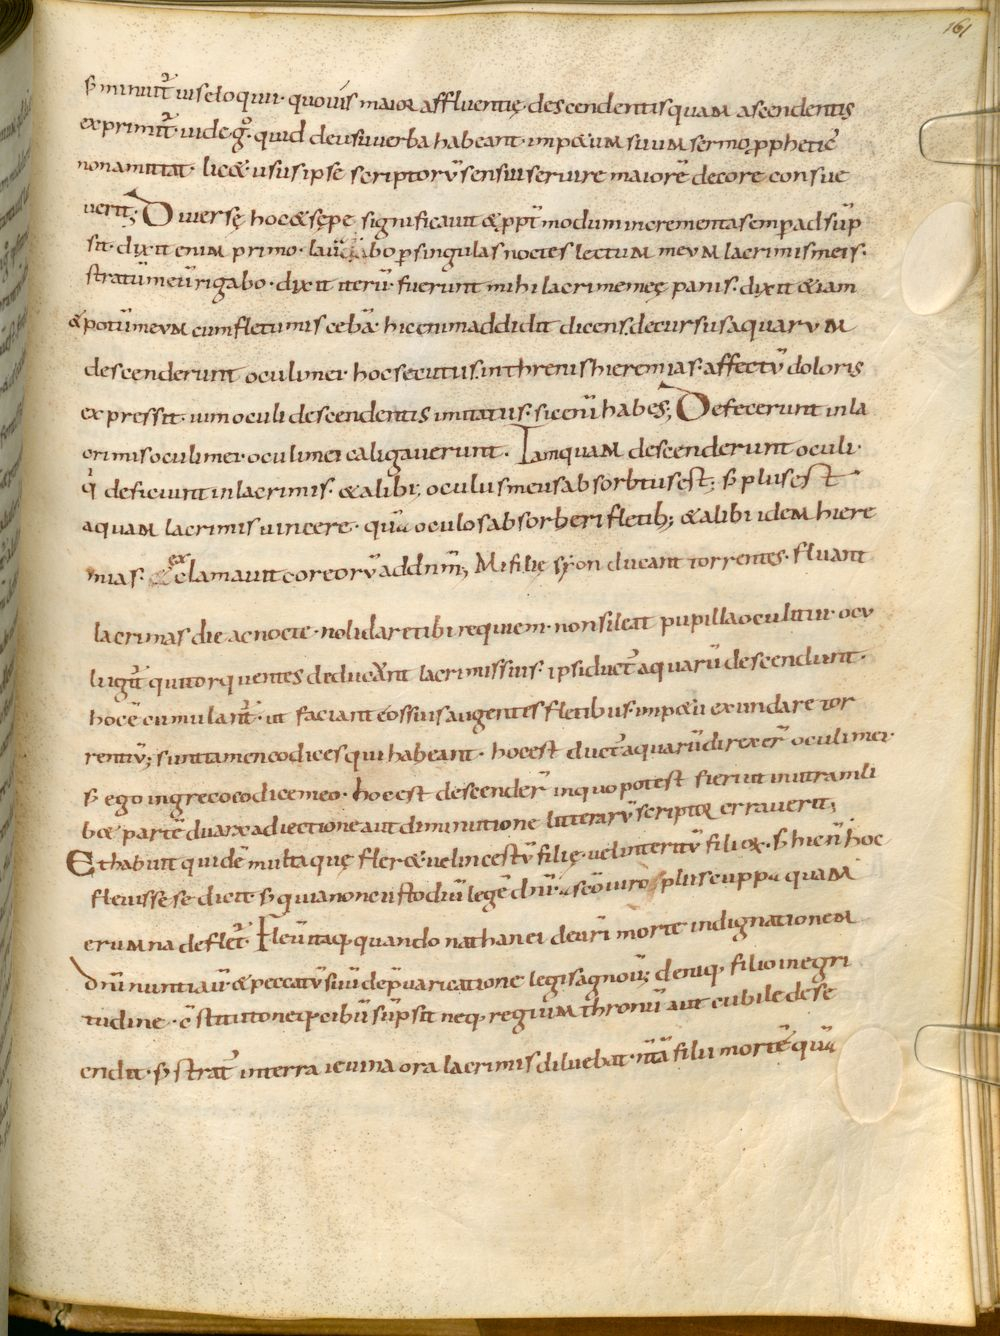 161
s̄ minuit᷑ uis eloquii· quo uis maior affluentię· descendentis quaM ascendentis
exprimit᷑· uide g̊· quid deusiui uerba habeant· impetuM suuM sermo ꝓphetic̄
non amittat· licet usus ipse scriptorū sensui seruire maiorē decore consue
uerit; Diuersę hoc & sępe significauit & ꝓpt̄ modum incrementa semp adsūp
sit· dixit enim primo· lauabo ꝑ singulas noctes lectuM meuM lacrimis meis·
stratū meū rigabo· dixit iterū· fuerunt mihi lacrime męe panis· dixit & iam
& potū meuM cum fletu miscebā· hic enim addidit dicens· decursus aquaruM
descenderunt oculi mei· hoc secutus· in threnis hieremias· affectū doloris
expressit· uim oculi descendentis imitatus· sic enī habes; Defecerunt in la
crimis oculi mei· oculi mei caligauerunt· IamquaM descenderunt oculi·
qⁱ deficiunt in lacrimis· & alibi; oculus meus absorbtus est; s̄ plus est
aquaM lacrimis uincere· quā oculos absorberi fletib; & alibi ideM hiere
mias· exclamauit cor eorū ad dnm̄; Mi filię syon ducant torrentes· fluant
lacrimas die ac nocte· noli dare tibi requiem· non sileat pupilla oculi tui· ocu
li ugit᷑ qui torquentes deducant lacrimis suis· ipsi duct᷑ aquarū descendunt·
hoc ē cumulant᷑· ut faciant eos suis augentes fletibus· impetu exundare tor
rentiū; sunt tamen codices qui habeant· hoc est duct᷑ aquarū direxer̄ oculi mei·
s̄ ego in greco codice meo· hoc est descender̄ inquo potest fieri ut in utramli
bet partē duarx adiectione aut diminutione litterarū scriptor errauerit;
Et habuit quidē multa quę fler& uel incestū filię· uel interitū filiorꝫ· s̄ hic n̄ hoc
fleuisse se dicit s̄ quia non custodiui legē dnī· a sc̄o uiro plus culpa quaM
erumna deflet᷑· Fleuit aqꝫ quando nathan ei dei uri morte indignationeM
dnī nuntiauit & peccatū suū de p̄uaricatione legis agnouit; deniqꝫ filio in egri
tudine· c̄stituto neqꝫ cibū sūpsit neqꝫ regiuM thronū aut cubile dese
endit· s̄ strat᷑ in terra ieiuna ora lacrimis diluebat· n̄tā filii mortē quā